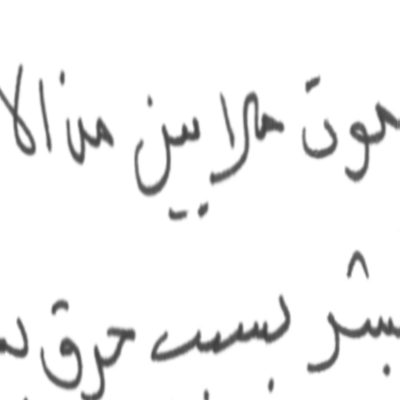 موت ملايين من الا
بشر بسبب حرق